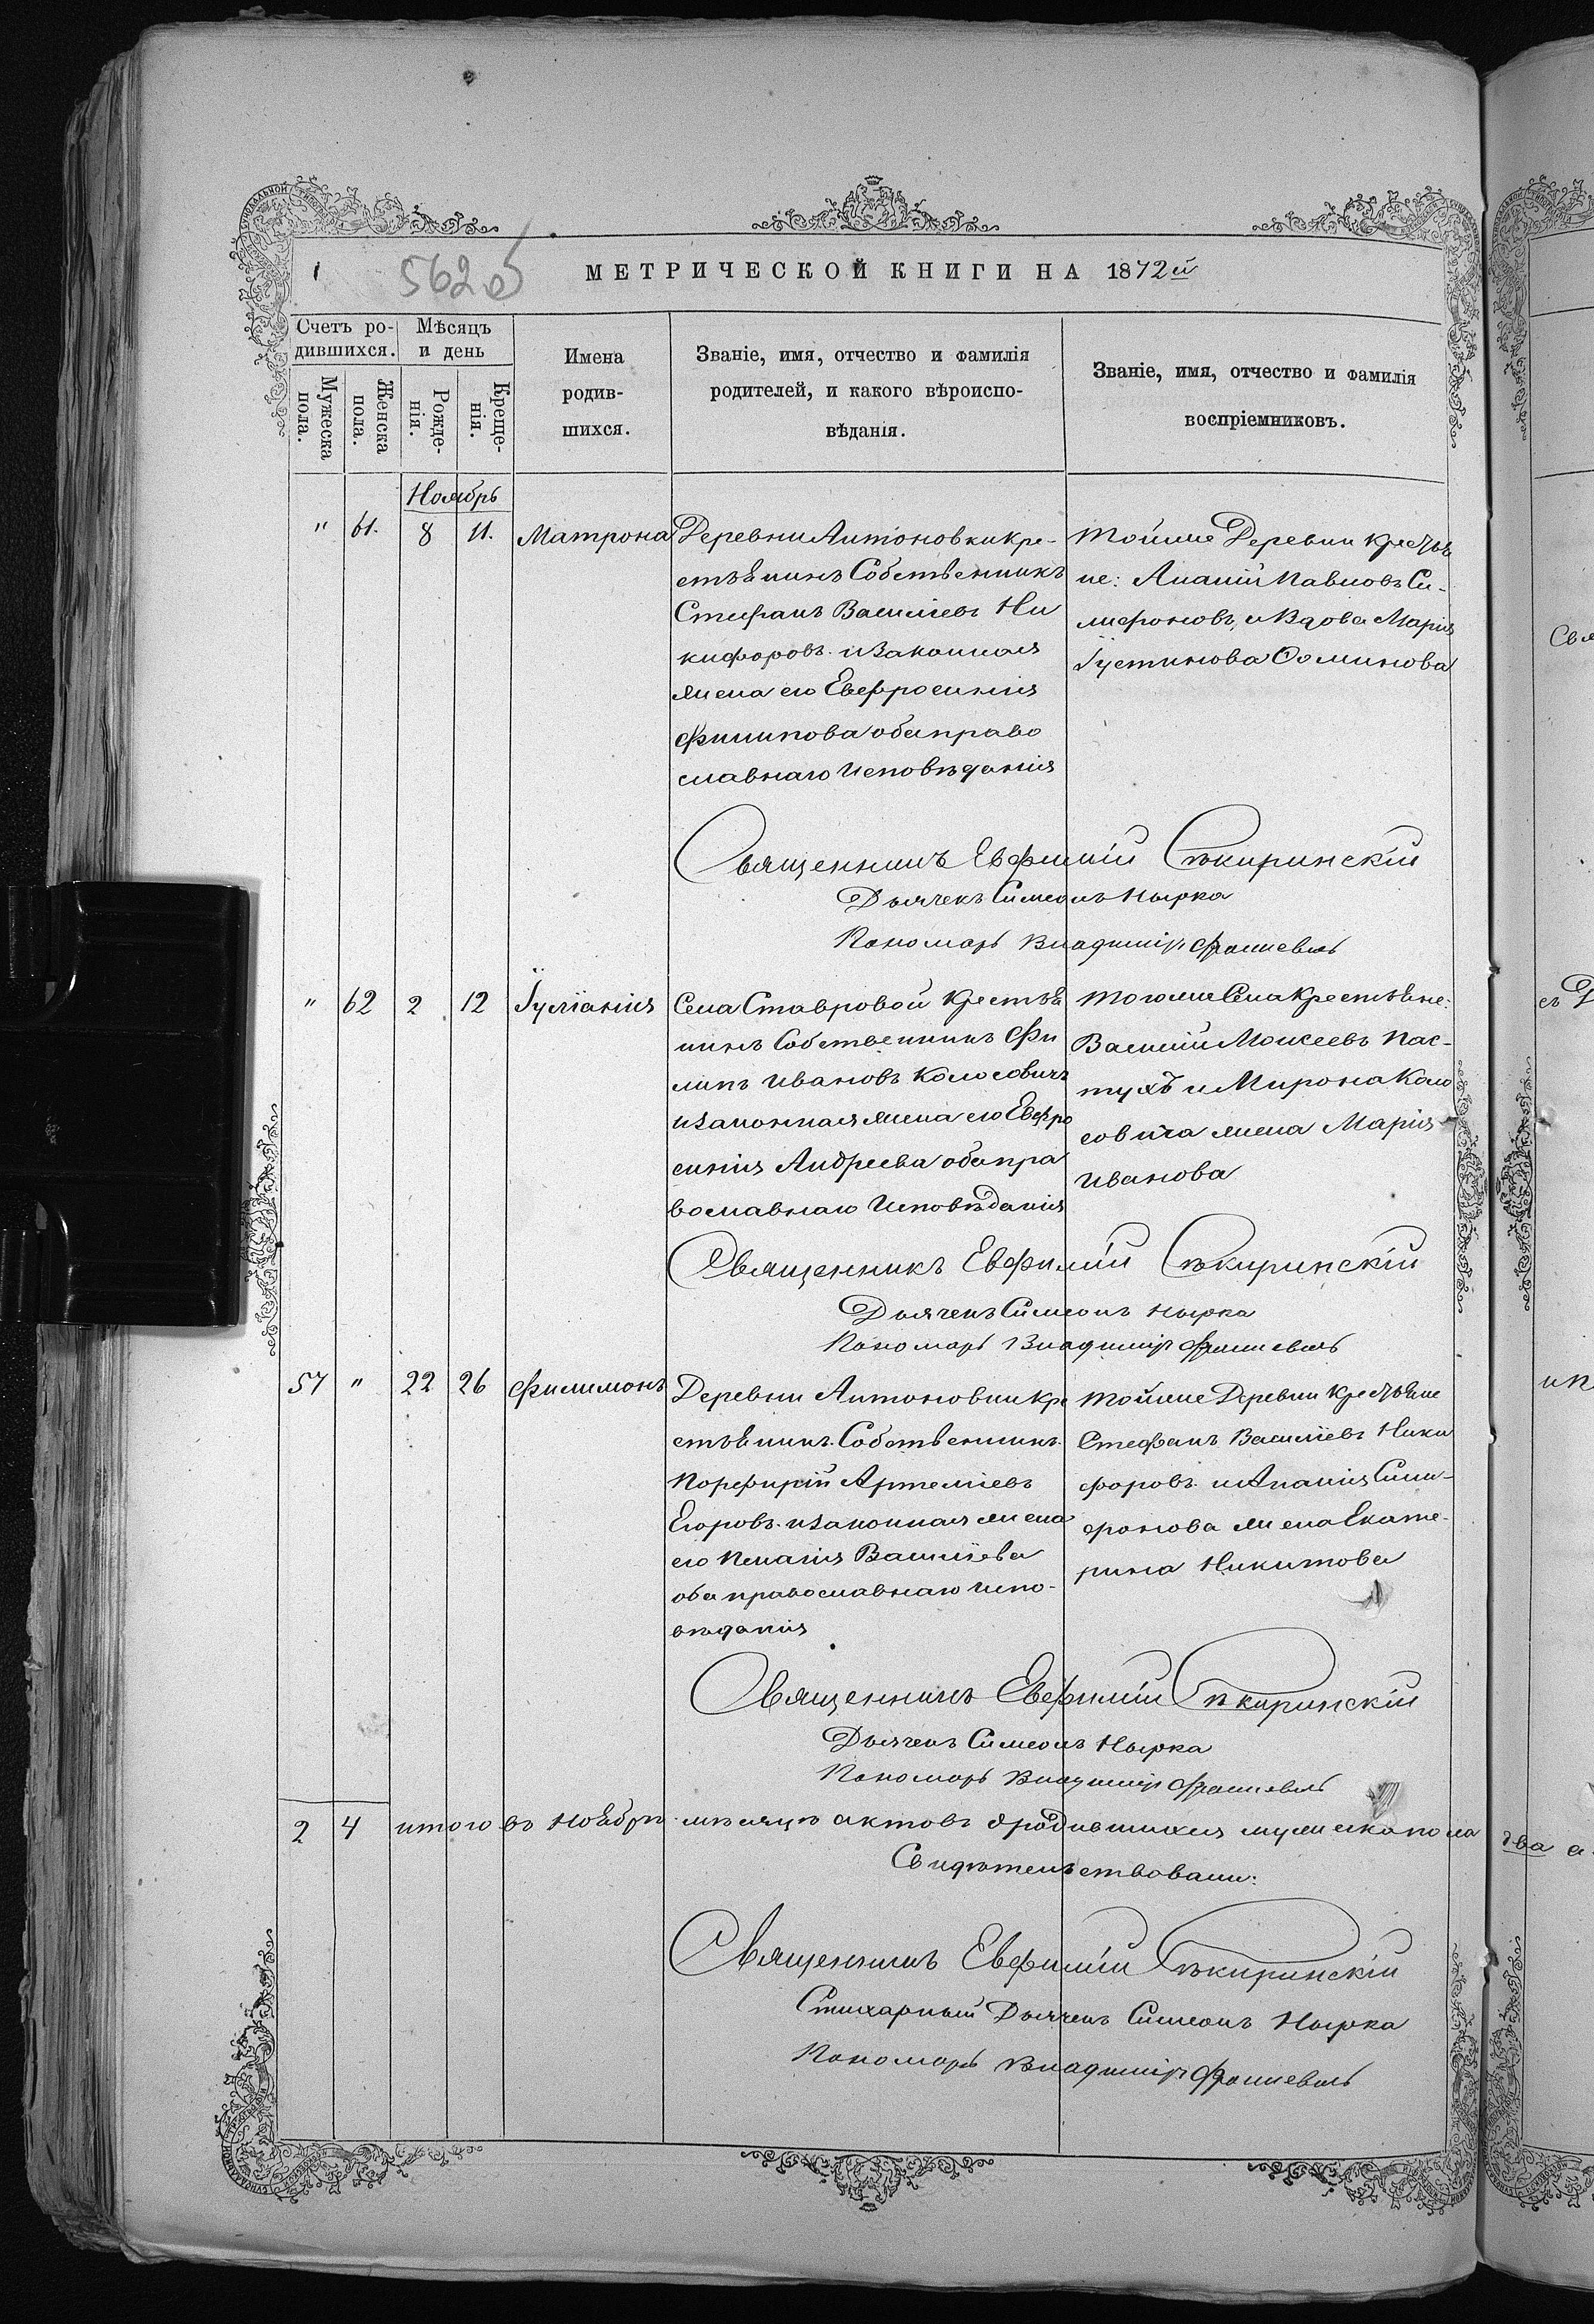 562об
МЕТРИЧЕСКОЙ КНИГИ НА 1872й
Счетъ ро-
дившихся.
Мѣсяцъ
и день
Мужеска
пола.
Женска
пола.
Рожде-
нія.
Креще-
нія.
Имена
родив-
шихся.
Званіе, имя, отчество и фамилія
родителей, и какого вѣроиспо-
вѣданія.
Званіе, имя, отчество и фамилія
воспріемниковъ.
Ноябрь
" 61. 8 11. Матрона
Деревни Антоновки кре-
стьянинъ Собственникъ
Стефанъ Василіевъ Ни
кифоровъ и Законная
жена его Евфросинія
Филипова оба право
славнаго Исповѣданія
Тойже Деревни Крестья
не: Ананій Павловъ Си-
лифоновъ, и Вдова Марія
Іустинова Фоминова
Священникъ Евфимій Сѣкиринскій
Дьячекъ Симеонъ Нырка
Пономарь Владиміръ
" 62 2 12 Іуліанія
Села Ставровой Крестья
нинъ Собственникъ Фи
липъ Ивановъ Колосовичъ
и законная жена его Евфро
синія Андреева оба пра
вославнаго Исповѣданія
Тогоже Села Крестьяне:
Василій Моисеевъ Пас-
тухъ и Мирона Коло
совича жена Марія
Иванова
Священникъ Евфимій Сѣкиринскій
Дьячекъ Симеонъ Нырка
Пономарь Владиміръ
57 " 22 26 Филимонъ
Деревни Антоновки Кре
стьянинъ Собственникъ
Порфирій Артеміевъ
Егоровъ и законная жена
его Пелагія Василіева
оба православнаго Испо-
вѣданія
Тойже Деревни Крестьяне
Стефанъ Василіевъ Ники
форовъ и Ананія Сили-
фонова жена Екате-
рина Никитова
Священникъ Евфимій Сѣкиринскій
Дьячекъ Симеонъ Нырка
Пономарь Владиміръ
2 4 итого въ Ноябрѣ мѣсяцѣ актовъ о родившихся мужеска пола
два
Свидѣтельствовали:
Священникъ Евфимій Сѣкиринскій
Стихарный Дьячекъ Симеонъ Нырка
Пономарь Владиміръ